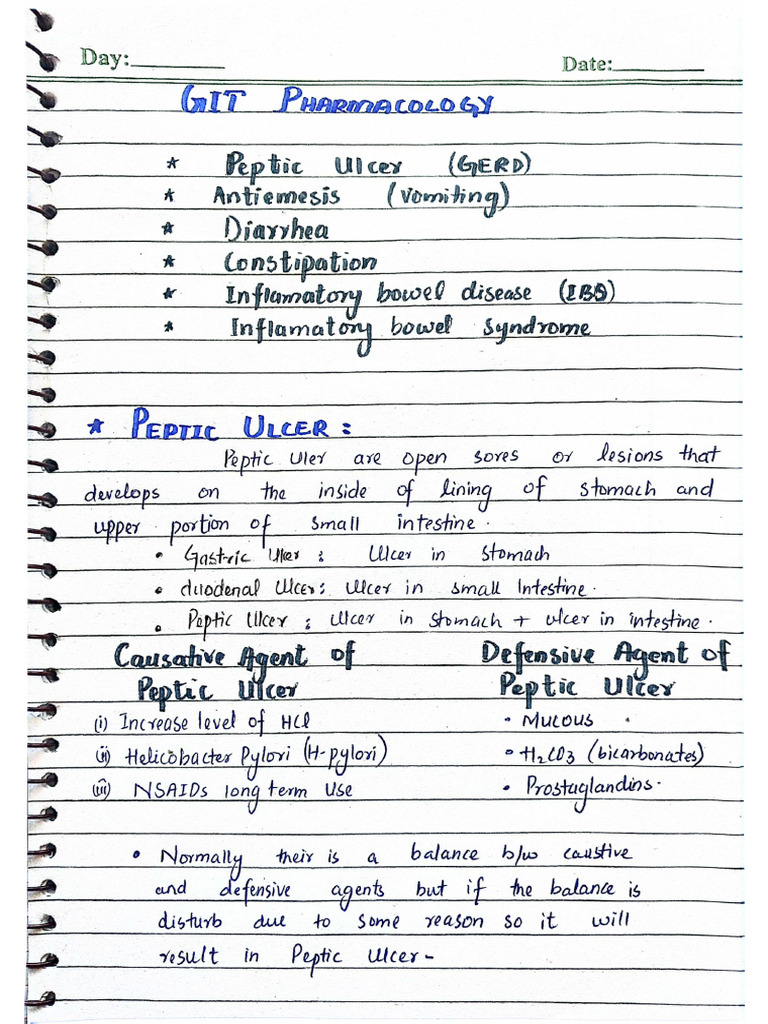 Day:_________ Date:_________
GIT PHARMACOLOGY
* Peptic Ulcer (GERD)
* Antiemesis (vomiting)
* Diarrhea
* Constipation
* Inflamatory bowel disease (IBS)
* Inflamatory bowel syndrome
* PEPTIC ULCER :
Peptic Uler are open sores or lesions that
develops on the inside of lining of stomach and
upper portion of small intestine.
• Gastric Ulcer : Ulcer in stomach
• duodenal Ulcer: Ulcer in small Intestine.
• Peptic Ulcer ; Ulcer in stomach + ulcer in intestine.
Causative Agent of Defensive Agent of
Peptic Ulcer Peptic Ulcer
(i) Increase level of HCl • Mucous .
(ii) Helicobacter Pylori (H-pylori) • H₂CO3 (bicarbonates)
(iii) NSAIDs long term Use • Prostaglandins.
• Normally their is a balance b/w caustive
and defensive agents but if the balance is
disturb due to some reason so it will
result in Peptic Ulcer-